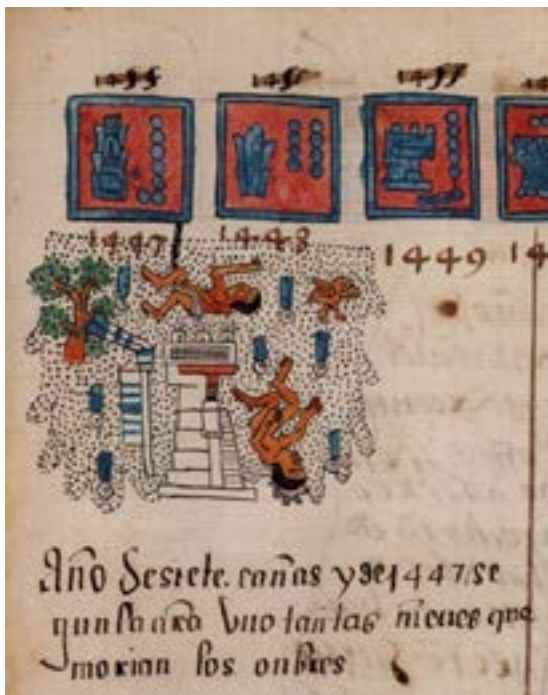 1447 1448 1449 14
Año de siete. cañas y de 1447 se
gun la nra Vuo tantas nieues que
morian los onbres